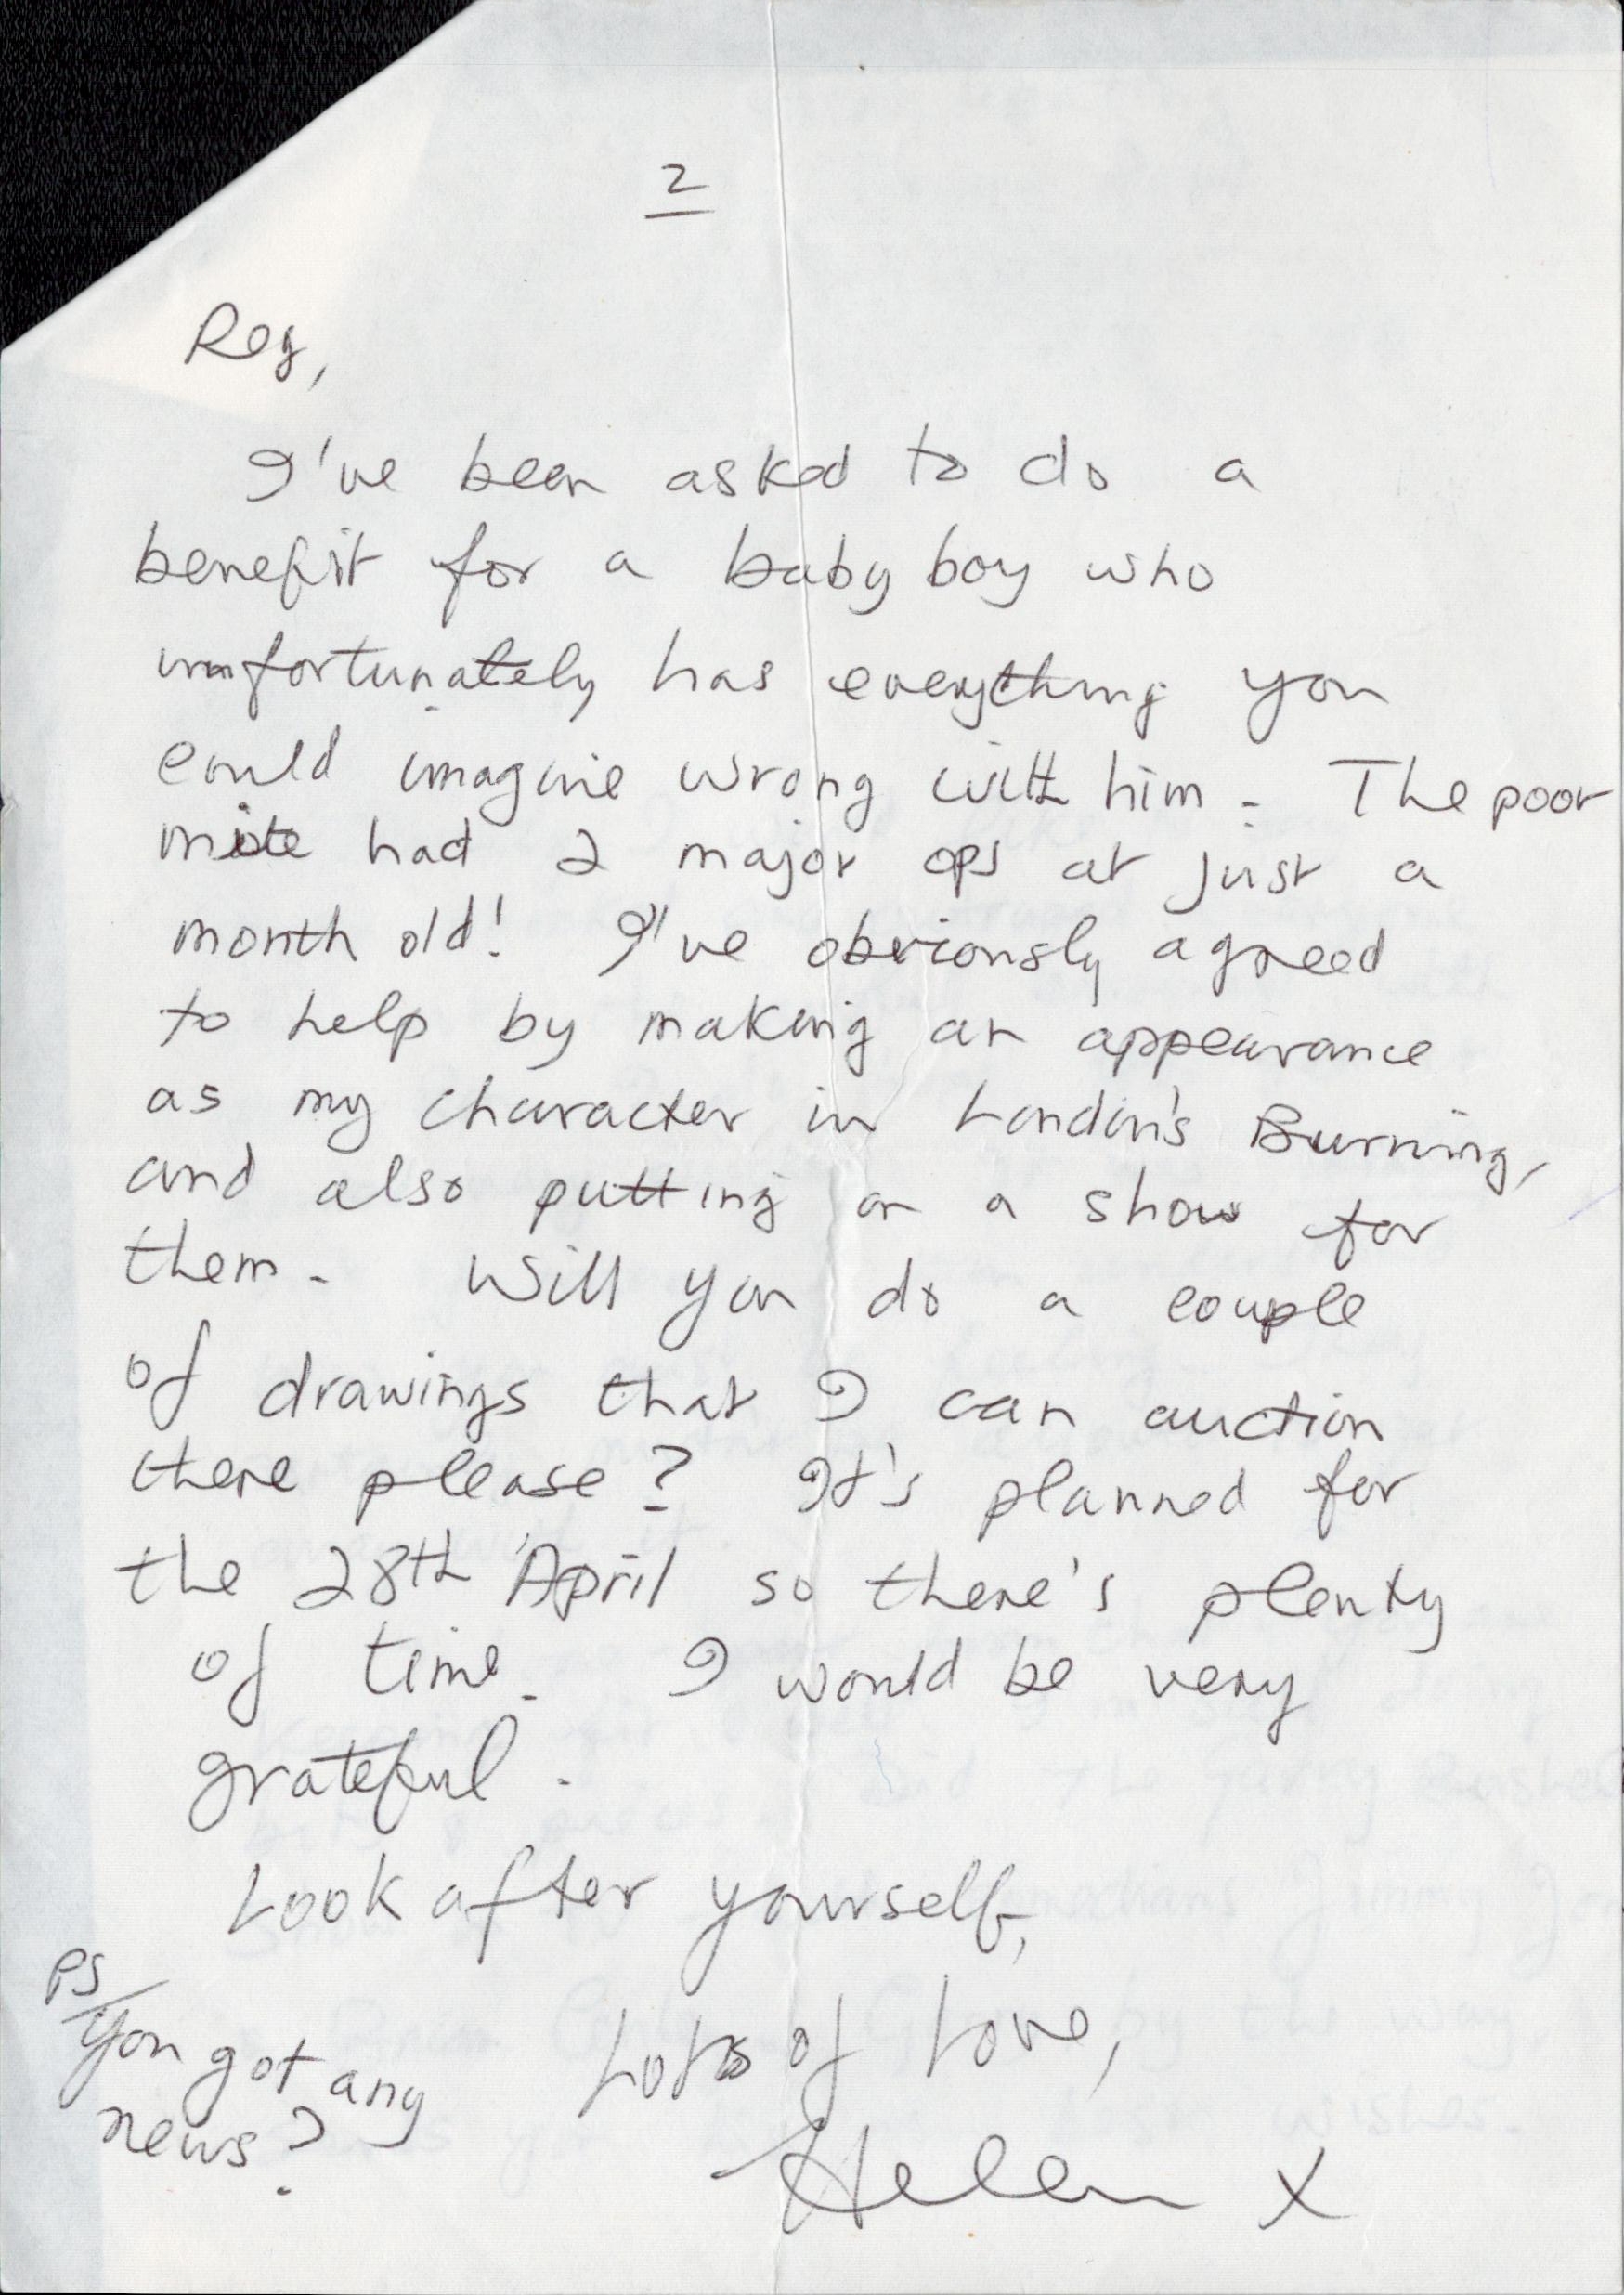 2
Reg,
I've been asked to do a
benefit for a baby boy who
unfortunately has everything you
could imagine wrong with him. The poor
mite had 2 major ops at just a
month old! I've obviously agreed
to help by making an appearance
as my character in London's Burning,
and also putting on a show for
them. Will you do a couple
of drawings that I can auction
there please? It's planned for
the 28th April so there's plenty
of time. I would be very
grateful.
Look after yourself,
Lots of Love,
Helen X
PS/
You got any
news?